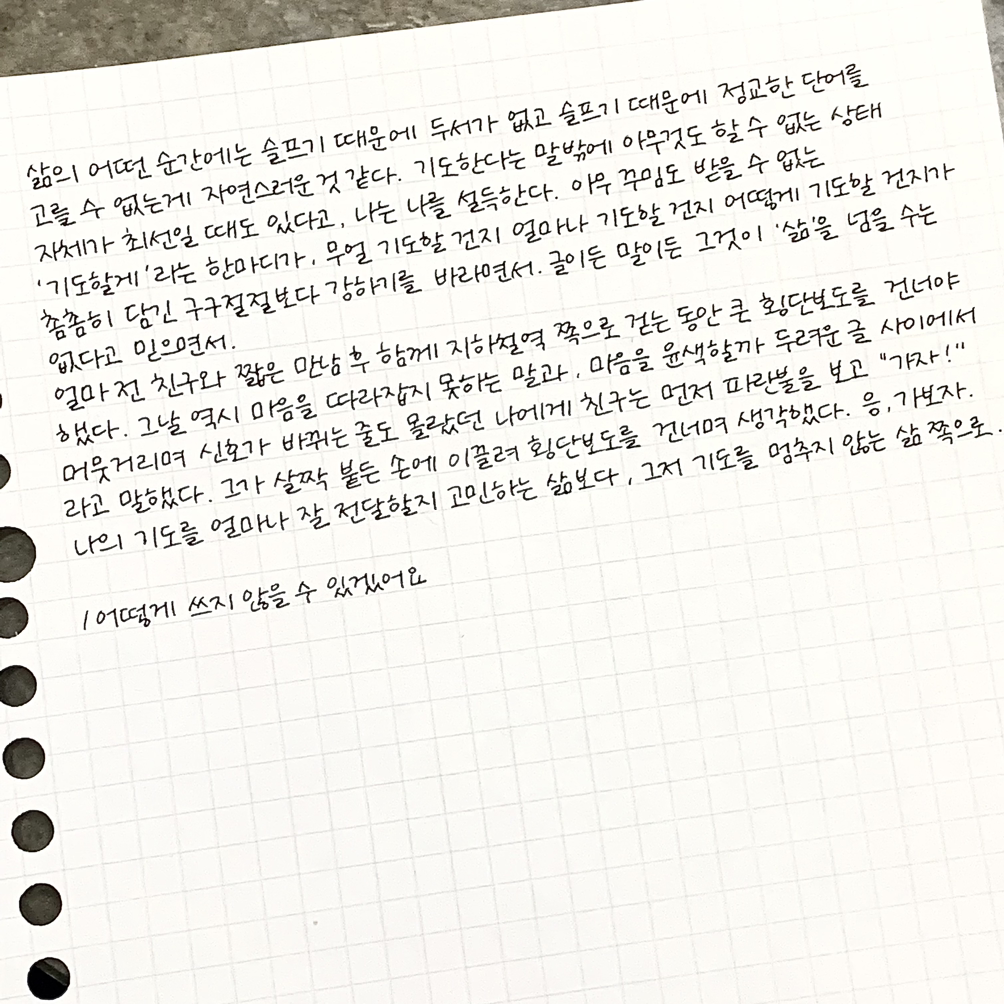 삶의 어떤 순간에는 슬프기 때문에 두서가 없고 슬프기 때문에 정교한 단어를
고를 수 없는게 자연스러운 것 같다. 기도한다는 말밖에 아무것도 할 수 없는 상태
자체가 최선일 때도 있다고, 나는 나를 설득한다. 아무 꾸밈도 받을 수 없는
'기도할게'라는 한마디가, 무얼 기도할 건지 얼마나 기도할 건지 어떻게 기도할 건지가
촘촘히 담긴 구구절절보다 강하기를 바라면서. 글이든 말이든 그것이 '삶'을 넘을 수는
없다고 믿으면서.
얼마 전 친구와 짧은 만남 후 함께 지하철역 쪽으로 걷는 동안 큰 횡단보도를 건너야
했다. 그날 역시 마음을 따라잡지 못하는 말과, 마음을 윤색할까 두려운 글 사이에서
머뭇거리며 신호가 바뀌는 줄도 몰랐던 나에게 친구는 먼저 파란불을 보고 "가자!"
라고 말했다. 그가 살짝 붙든 손에 이끌려 횡단보도를 건너며 생각했다. 응, 가보자.
나의 기도를 얼마나 잘 전달할지 고민하는 삶보다, 그저 기도를 멈추지 않는 삶 쪽으로.
/ 어떻게 쓰지 않을 수 있겠어요